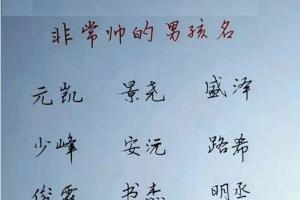 非常帅的男孩名
元凯 景尧 盛泽
少峰 安沅 路希
俊霖 书杰 明丞